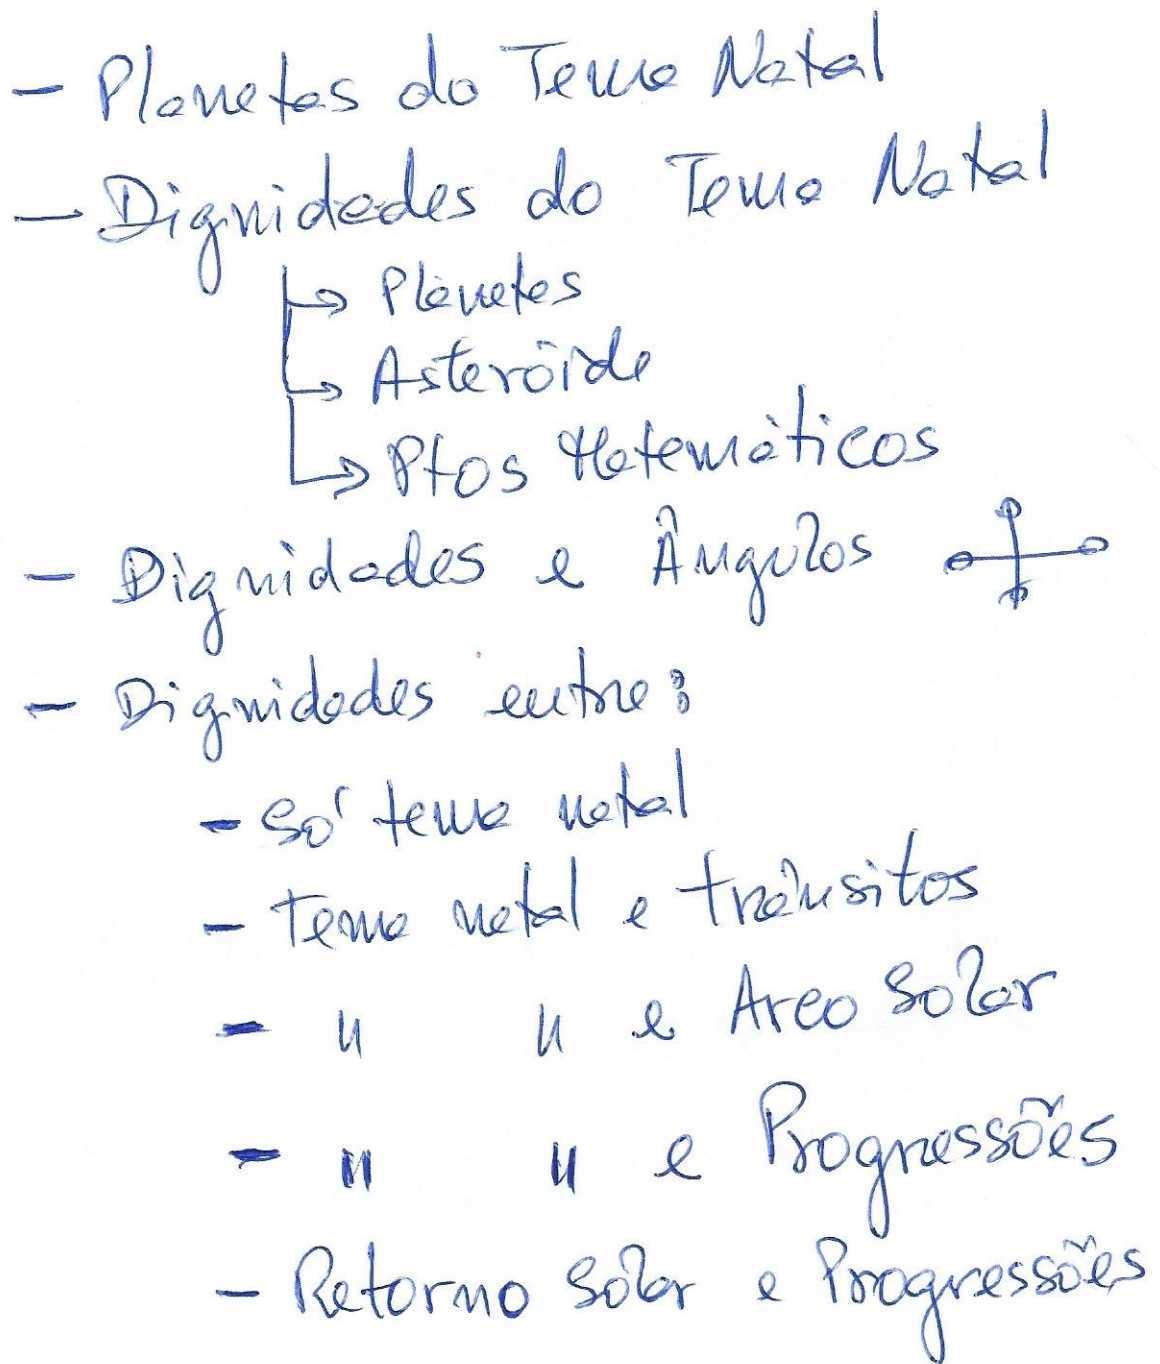 - Planetas do Tema Natal
- Dignidades do Tema Natal
→ Planetas
→ Asteróide
→ Ptos Matemáticos
- Dignidades e Ângulos
- Dignidades entre:
- Só tema natal
- Tema natal e trânsitos
- " " e Arco Solar
- " " e Progressões
- Retorno Solar e Progressões